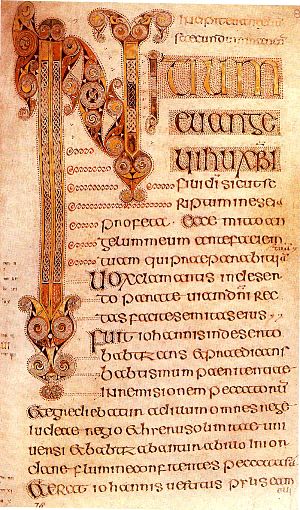 INITIUM
euange
lii ihu xpi
fili di sicut sc
riptum in esei
profeta ecce mitto an
gelum meum ante faciem
tuam qui
uox clamantis in deser
to parate uiam dni rec
tas facite semitas eius
fuit iohannis in deserto
babtizans & praedicans
babtismum paenitentiae
in remisionem peccatorum
& egrediebatur ad illum omnes
iudeae regio & hierusolimitae uni
uersi & babtizabantur ab illo in ior
dane flumine confitentes peccata sua
& erat iohannis uestitus pylis cam